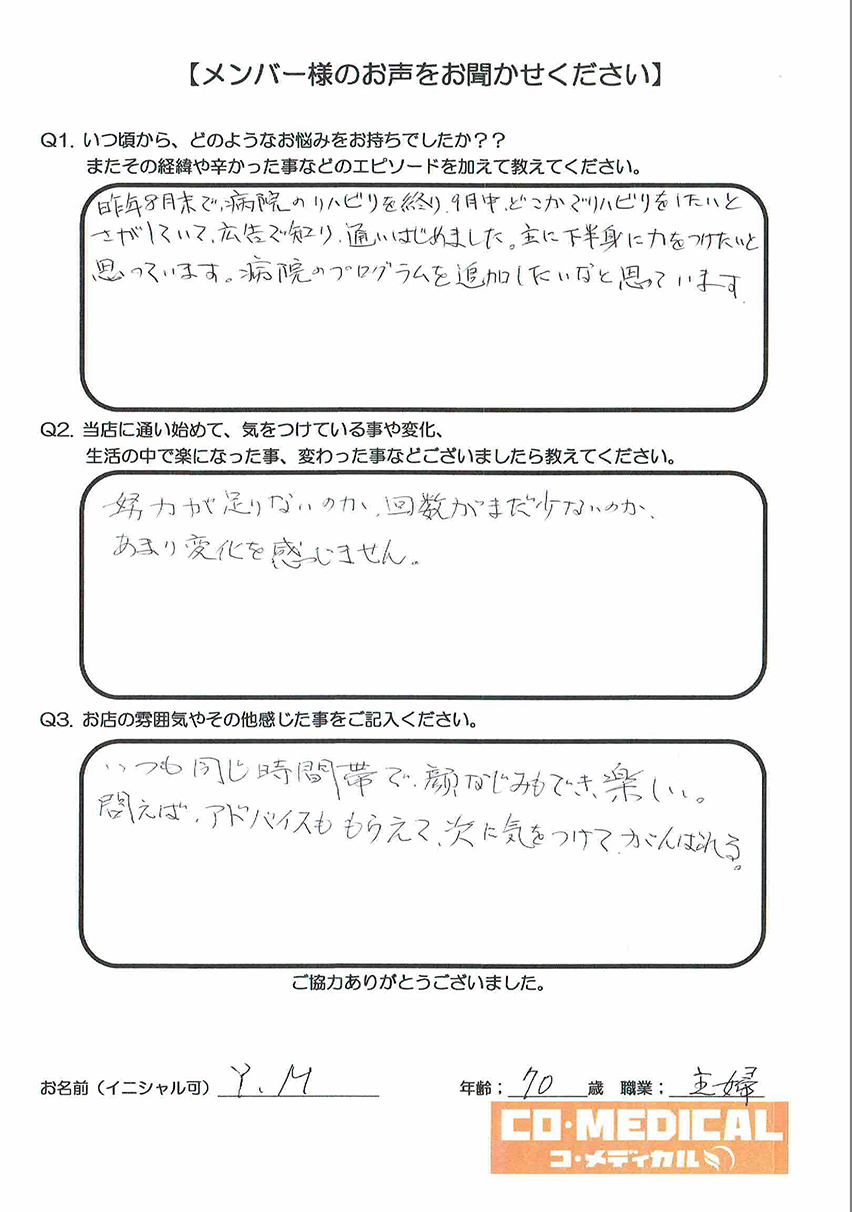 【メンバー様のお声をお聞かせください】
Q1. いつ頃から、どのようなお悩みをお持ちでしたか？？
またその経緯や辛かった事などのエピソードを加えて教えてください。
昨年8月末で、病院のリハビリを終り、9月中、どこかでリハビリをしたいと
さがしていて、広告で知り、通いはじめました。主に下半身に力をつけたいと
思っています。病院のプログラムを追加したいなと思っています.
Q2. 当店に通い始めて、気をつけている事や変化、
生活の中で楽になった事、変わった事などございましたら教えてください。
努力が足りないのか、回数がまだ少ないのか、
あまり変化を感じません。
Q3. お店の雰囲気やその他感じた事をご記入ください。
いつも同じ時間帯で、顔なじみもでき、楽しい。
問えば、アドバイスももらえて、次に気をつけて、がんばれる。
ご協力ありがとうございました。
お名前（イニシャル可） Y.M 年齢； 70 歳 職業； 主婦
CO・MEDICAL
コ・メディカル